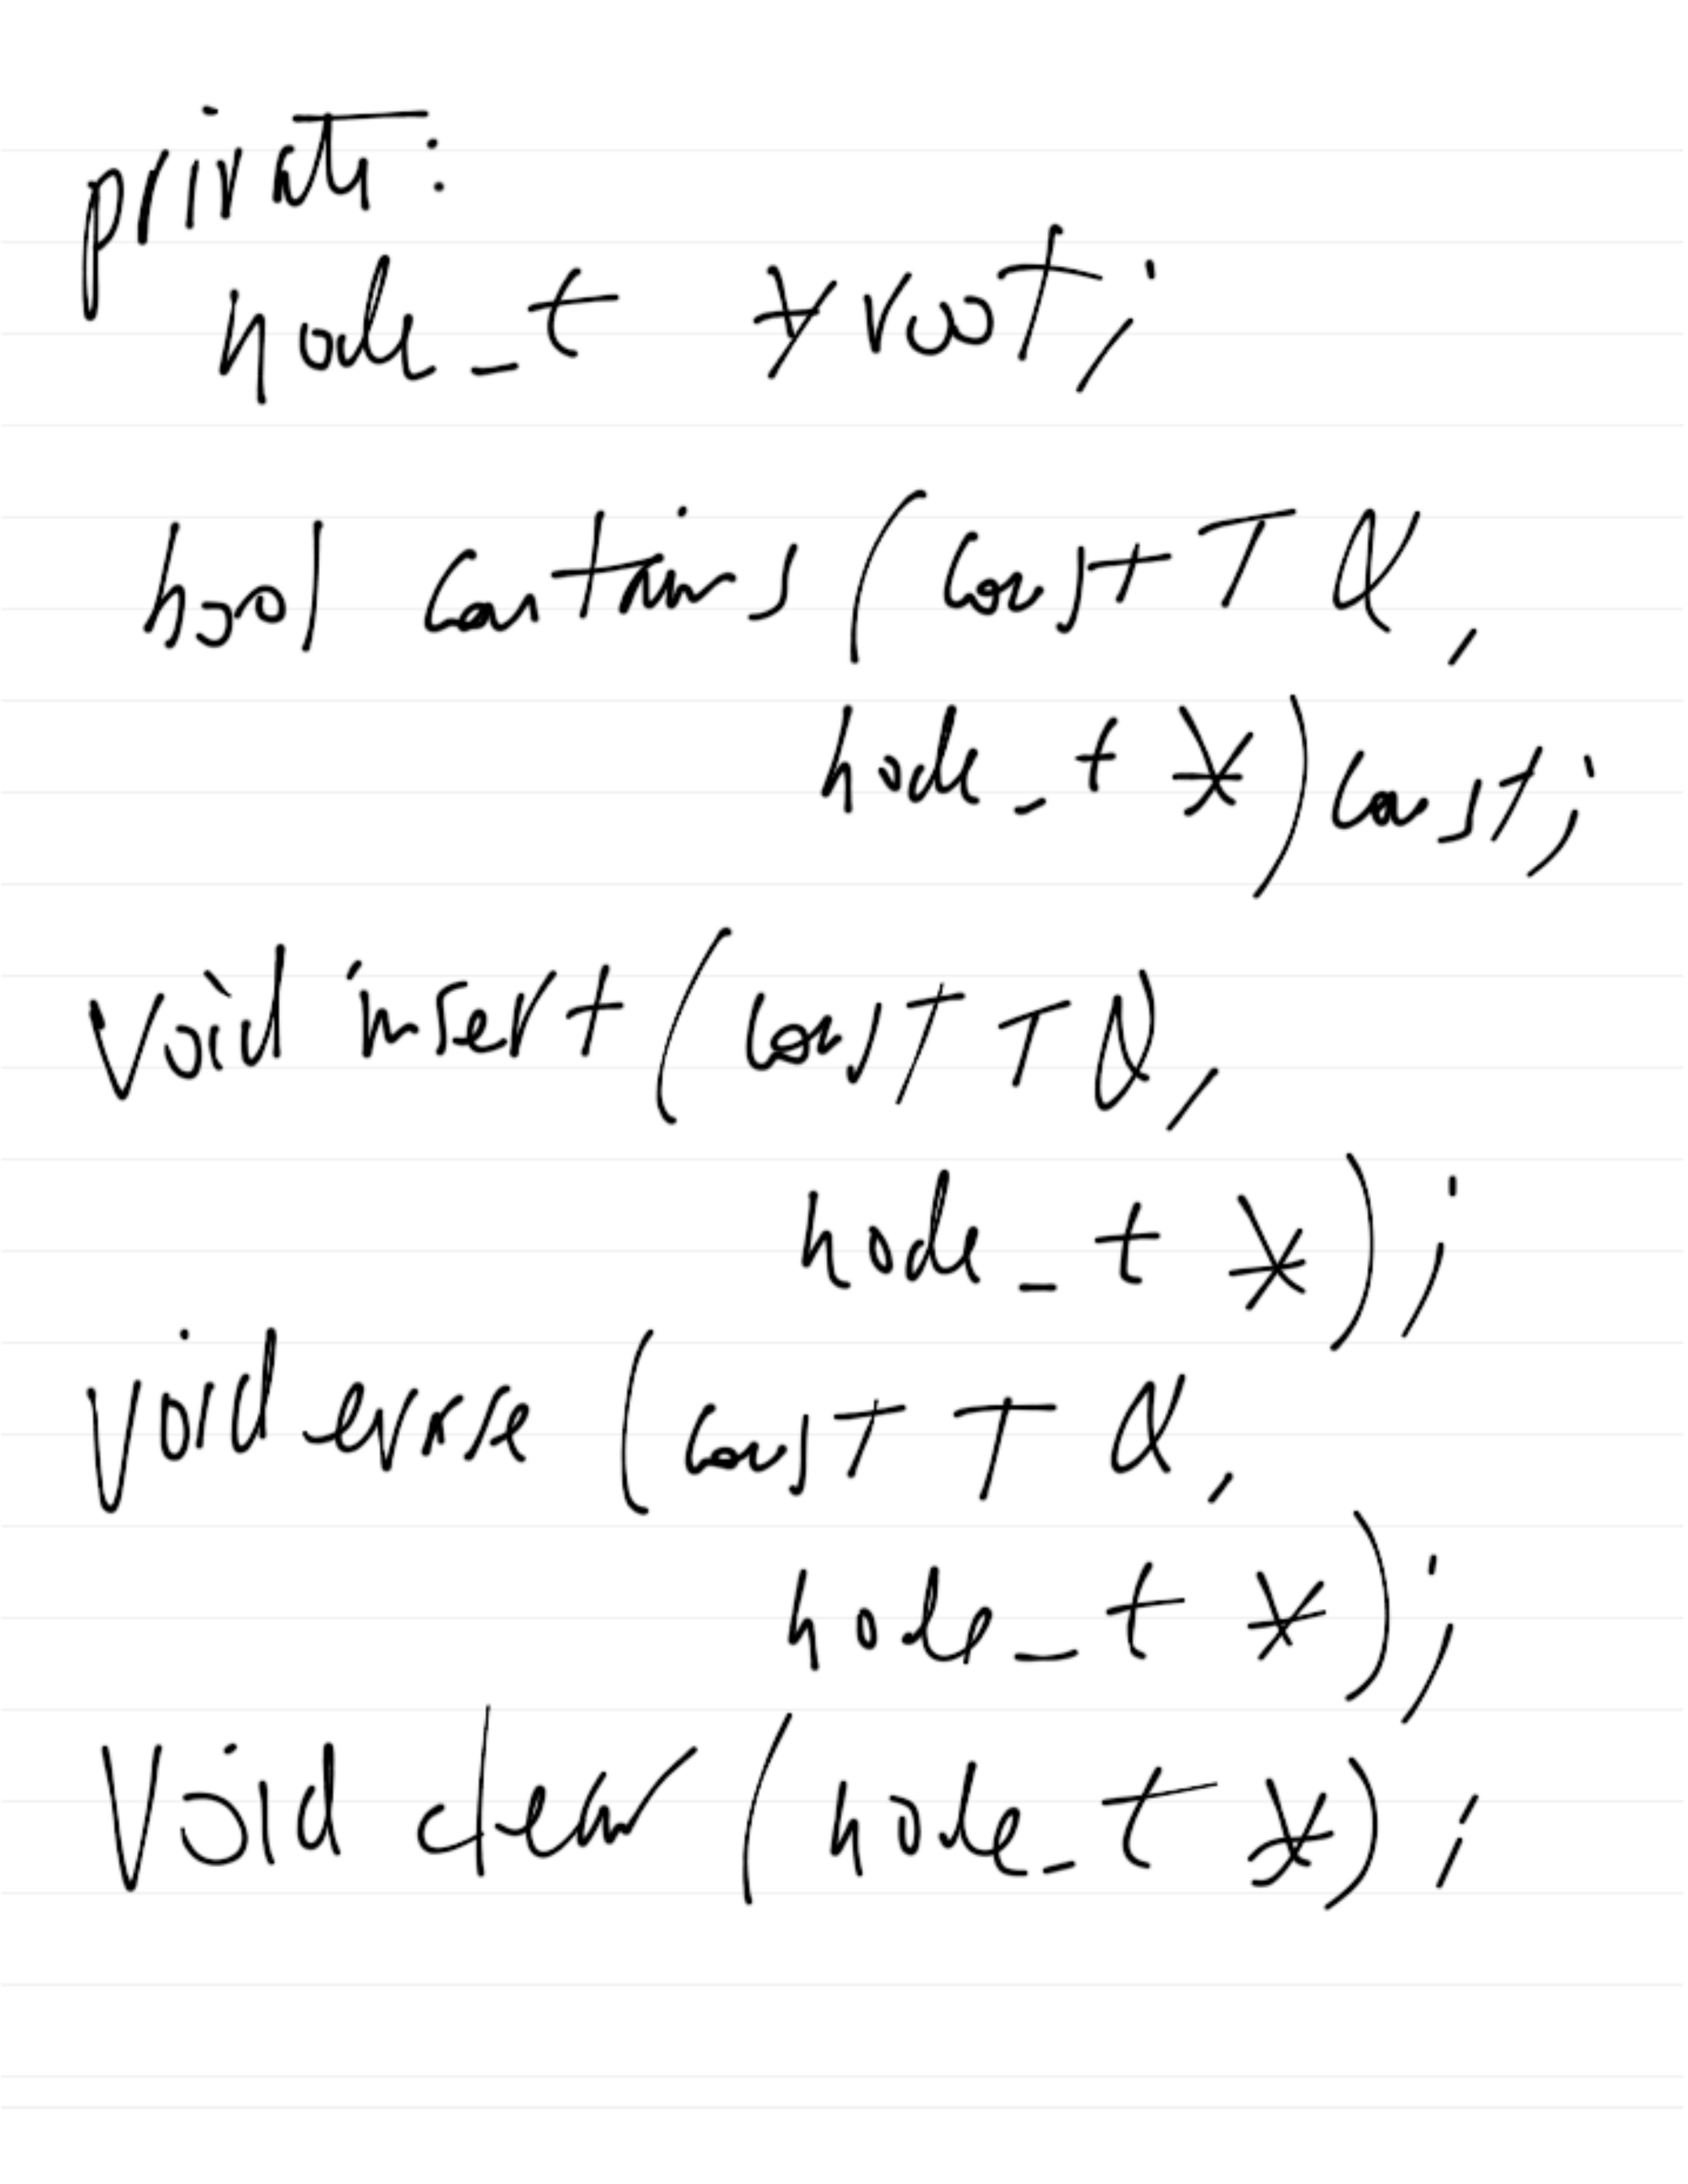 private:
node_t *root;
bool contains (const T &,
node_t *) const;
void insert (const T &,
node_t *);
void erase (const T &,
node_t *);
void clear (node_t *);